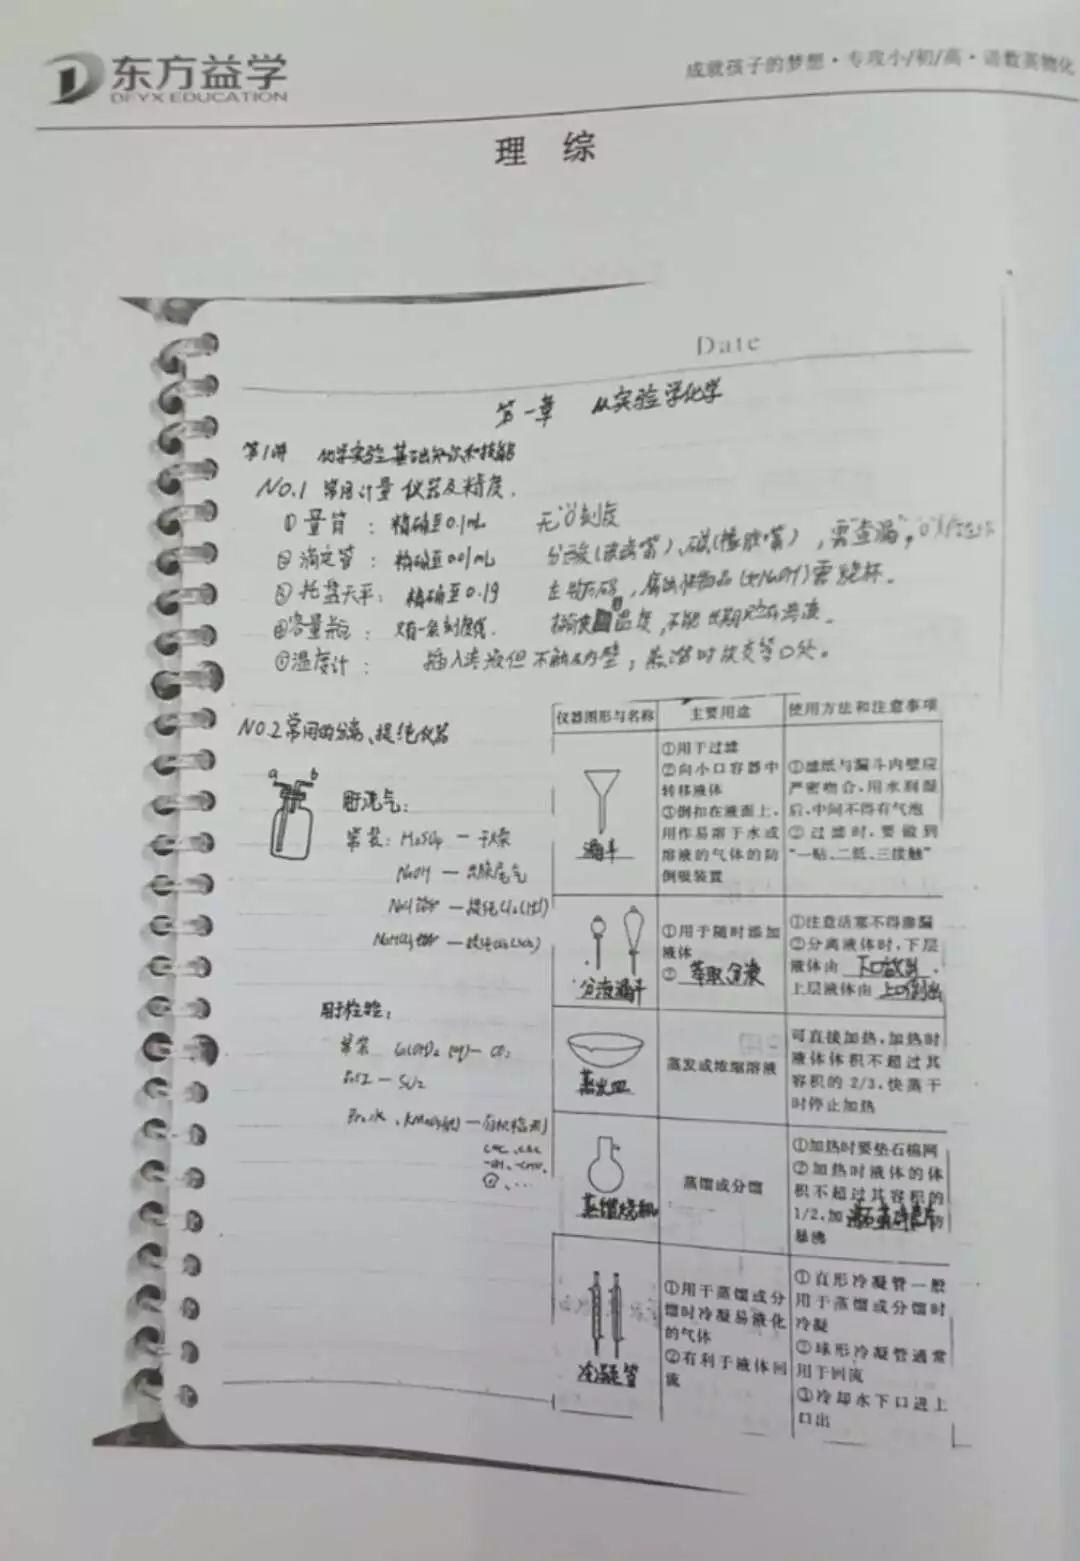 东方益学
DFYX EDUCATION
成就孩子的梦想·专攻小/初/高·语数英物化
理 综
Date
第一章 从实验学化学
第1讲 化学实验基础知识和技能
NO.1 常用计量仪器及精度.
①量筒: 精确至0.1mL 无"0"刻度
②滴定管: 精确至0.01mL 分酸(玻璃嘴)、碱(橡胶嘴),需"查漏",
③托盘天平: 精确至0.1g 左物右码,腐蚀性物品(如NaOH)需烧杯。
④容量瓶: 只有一条刻度线. 温度,不能长期贮存溶液。
⑤温度计: 插入溶液但不触及内壁;蒸馏时放支管口处。
NO.2 常用的分离、提纯仪器
a b
用于洗气:
常装: H₂SO₄ — 干燥
NaOH — 尾气
NaCl — 提纯Cl₂(HCl)
NaHCO₃ — 提纯CO₂(SO₂)
用于检验:
常装 Ca(OH)₂ (aq) — CO₂
品红 — SO₂
Br₂水、KMnO₄(aq) —
仪器图形与名称 主要用途 使用方法和注意事项
漏斗
①用于过滤
②向小口容器中
转移液体
③倒扣在液面上,
用作易溶于水或
溶液的气体的防
倒吸装置
①滤纸与漏斗内壁应
严密吻合,用水润湿
后,中间不得有气泡
②过滤时,要做到
"一贴、二低、三接触"
分液漏斗
①用于随时添加
液体
②萃取分液
①注意活塞不得渗漏
②分离液体时,下层
液体由下口放出,
上层液体由上口倒出
蒸发皿
蒸发或浓缩溶液
可直接加热,加热时
液体体积不超过其
容积的 2/3,快蒸干
时停止加热
蒸馏烧瓶
蒸馏或分馏
①加热时要垫石棉网
②加热时液体的体
积不超过其容积的
1/2,加 防
暴沸
冷凝管
①用于蒸馏或分
馏时冷凝易液化
的气体
②有利于液体回
流
①直形冷凝管一般
用于蒸馏或分馏时
冷凝
②球形冷凝管通常
用于回流
③冷却水下口进上
口出